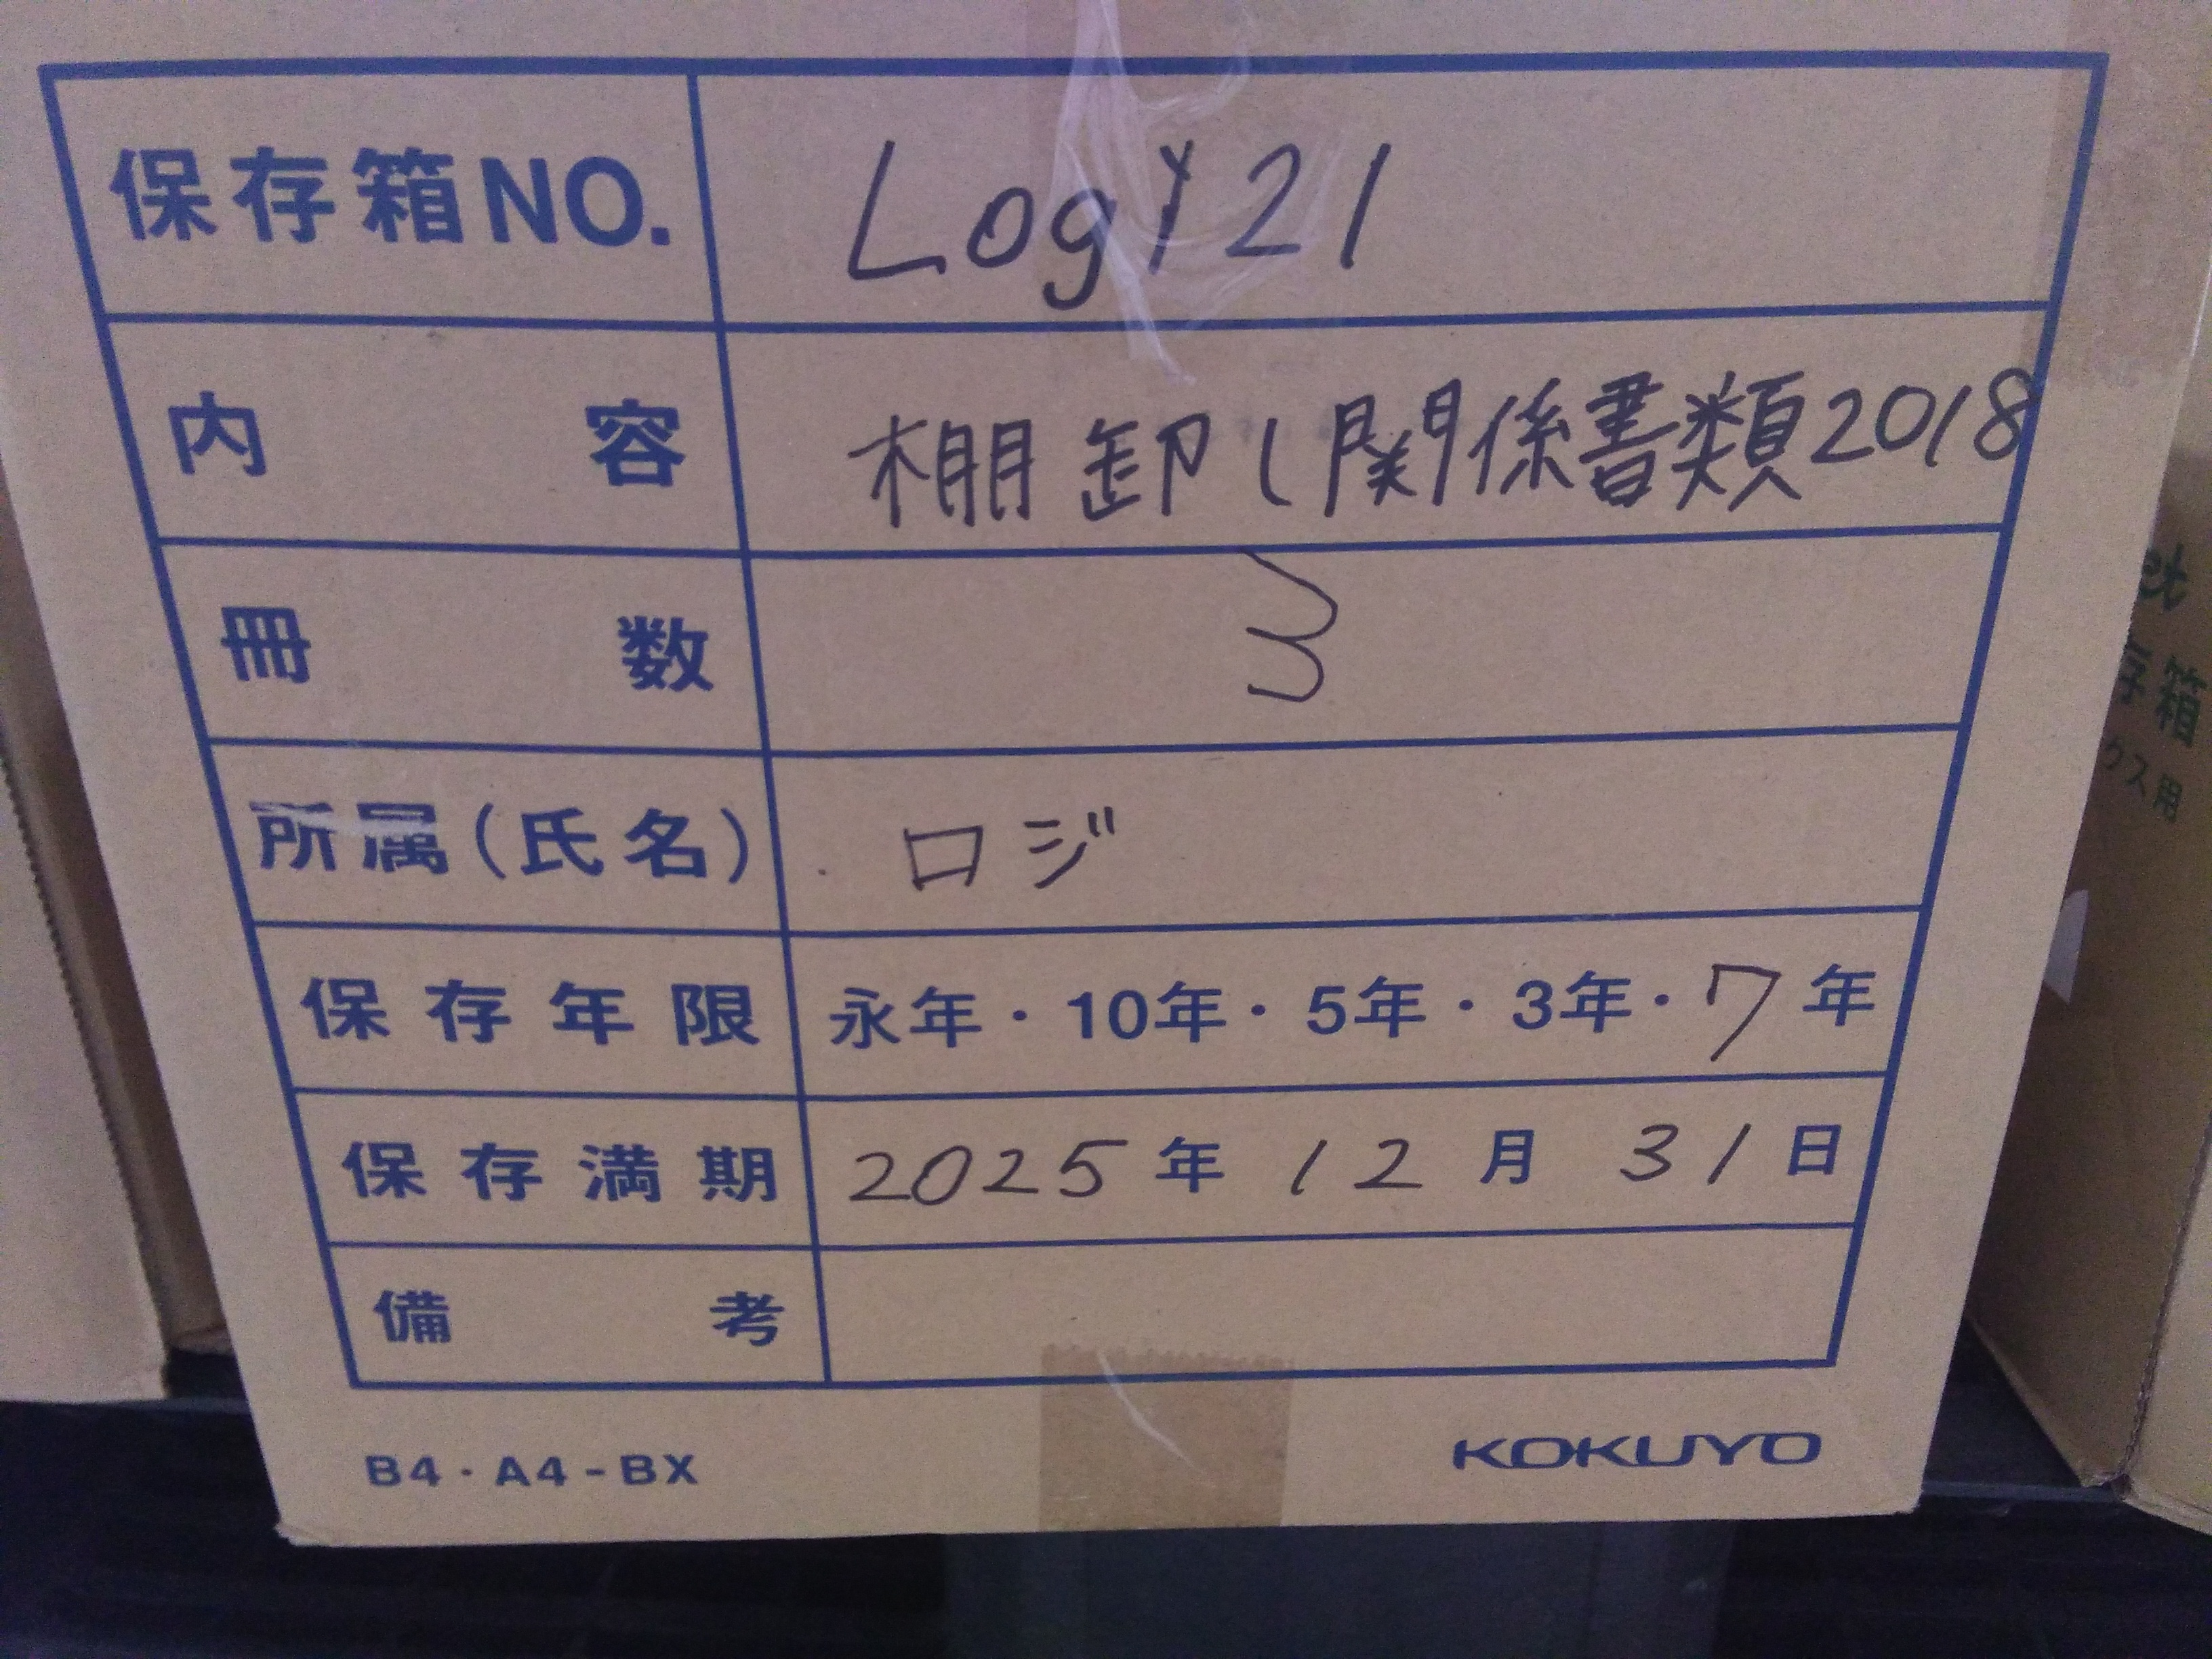 保存箱NO. Logi21
内容 棚卸し関係書類2018
冊数 3
所属(氏名) ロジ
保存年限 永年・10年・5年・3年・7年
保存満期 2025年12月31日
備考
B4・A4-BX KOKUYO
存箱
クス用